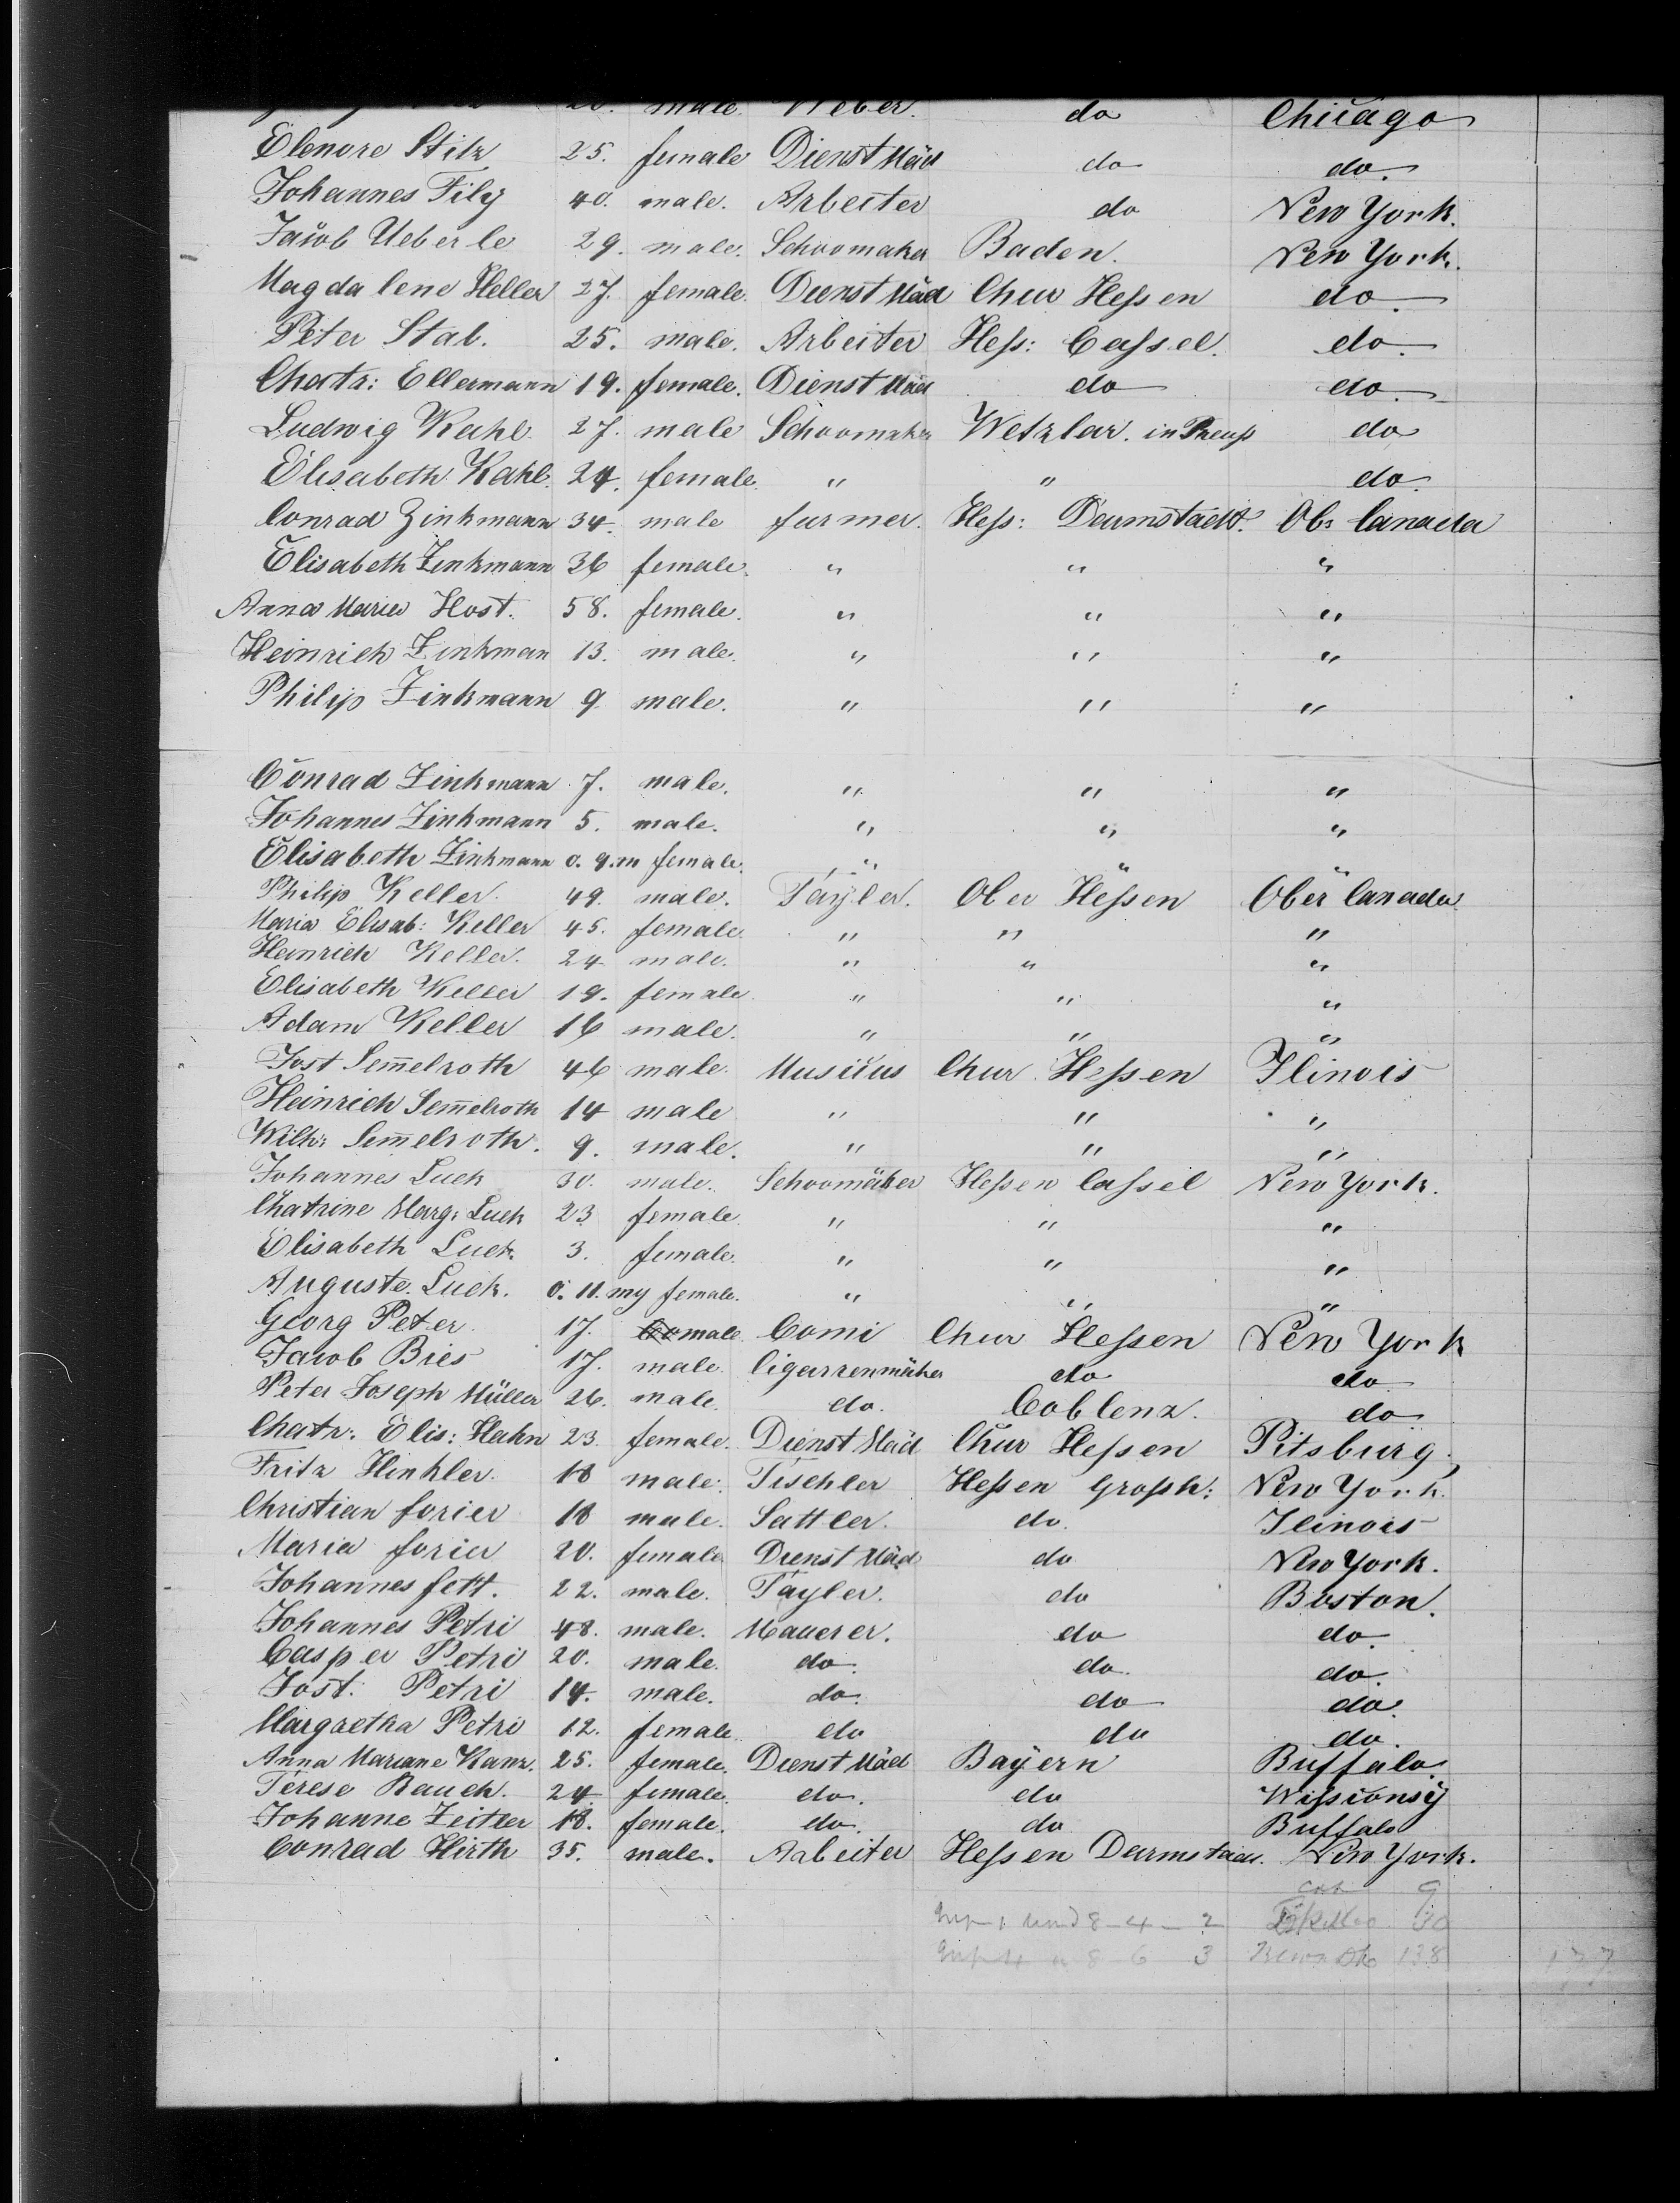 male. Weber. do Chicago
Elenore Stitz 25. female Dienst Mäd do do.
Johannes Filij 40. male. Arbeiter do New York.
Jacob Ueberle 29. male. Schoomaker Baden. New York.
Magdalene Heller 27. female. Dienst Mäd Chur Hessen do.
Peter Stab. 25. male. Arbeiter Hess: Cassel. do.
Chatr: Ellermann 19. female. Dienst Mäd do do.
Ludwig Kahl. 27. male Schoomaker Wetzlar. in Preuss do
Elisabeth Kahl. 24. female. " " do.
Conrad Zinkmann 34. male farmer. Hess: Darmstadt. Ob: Canada
Elisabeth Zinkmann 36 female. " " "
Anna Maria Host. 58. female. " " "
Heinrich Zinkman 13. male. " " "
Philip Zinkmann 9 male. " " "
Conrad Zinkmann 7. male. " " "
Johannes Zinkmann 5. male. " " "
Elisabeth Zinkmann 0. 9. m female. " " "
Philip Keller. 49. male. Tayler. Ober Hessen Ober Canada
Maria Elisab: Keller 45. female. " " "
Heinrich Keller. 24 male. " " "
Elisabeth Keller 19. female. " " "
Adam Keller 16 male. " " "
Jost Sem̄elroth 46 male. Musicus Chur Hessen Ilinois
Heinrich Sem̄elroth 14 male " " "
Wilh: Sem̄elroth. 9. male. " " "
Johannes Luck 30. male. Schoomäker Hessen Cassel New York.
Chatrine Marg: Luck 23 female. " " "
Elisabeth Luck. 3. female. " " "
Auguste Luck. 0. 11. m female. " " "
Georg Peter 17. male. Comi Chur Hessen New York
Jacob Bies 17. male. Cigarrenmäker do do
Peter Joseph Müller 26. male. do. Coblenz. do
Chatr: Elis: Hahn 23. female. Dienst Mäd Chur Hessen Pitsburg
Fritz Hinkler. 18 male. Tischler Hessen Grossh: New York.
Christian forier 18 male. Sattler. do. Ilinois
Maria forier 20. female Dienst Mäd do New York.
Johannes fett. 22. male. Tayler. do Boston.
Johannes Petri 48. male. Mauerer. do do.
Casper Petri 20. male. do. do. do.
Jost. Petri 14. male. do. do do.
Margaetha Petri 12. female. do do do.
Anna Mariane Kanz. 25. female. Dienst Mäd Bayern Buffalo
Terese Bauch. 24. female. do. do Wissionsij
Johanne Zeitler 18. female. do. do Buffalo
Conrad Hirth 35. male. Arbeiter Hessen Darmstadt. New York.
9
8 - 4 - 2 30
8 - 6 3 138 177